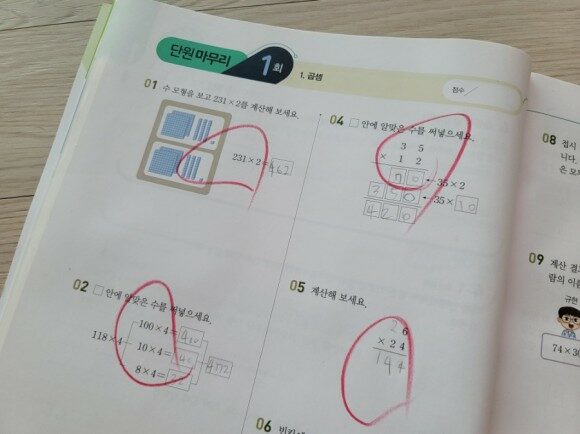 단원 마무리 1회
1. 곱셈
점수
01 수 모형을 보고 231×2를 계산해 보세요.
231×2=462
02 □ 안에 알맞은 수를 써넣으세요.
118×4
100×4=400
10×4=40
8×4=
472
04 □ 안에 알맞은 수를 써넣으세요.
3 5
× 1 2
7 0 ←35×2
3 5 0 ←35×10
4 2 0
05 계산해 보세요.
6
× 2 4
1 4 4
06
08 접시
니다.
은 모
09 계산 결
람의 이름
규현
74×30